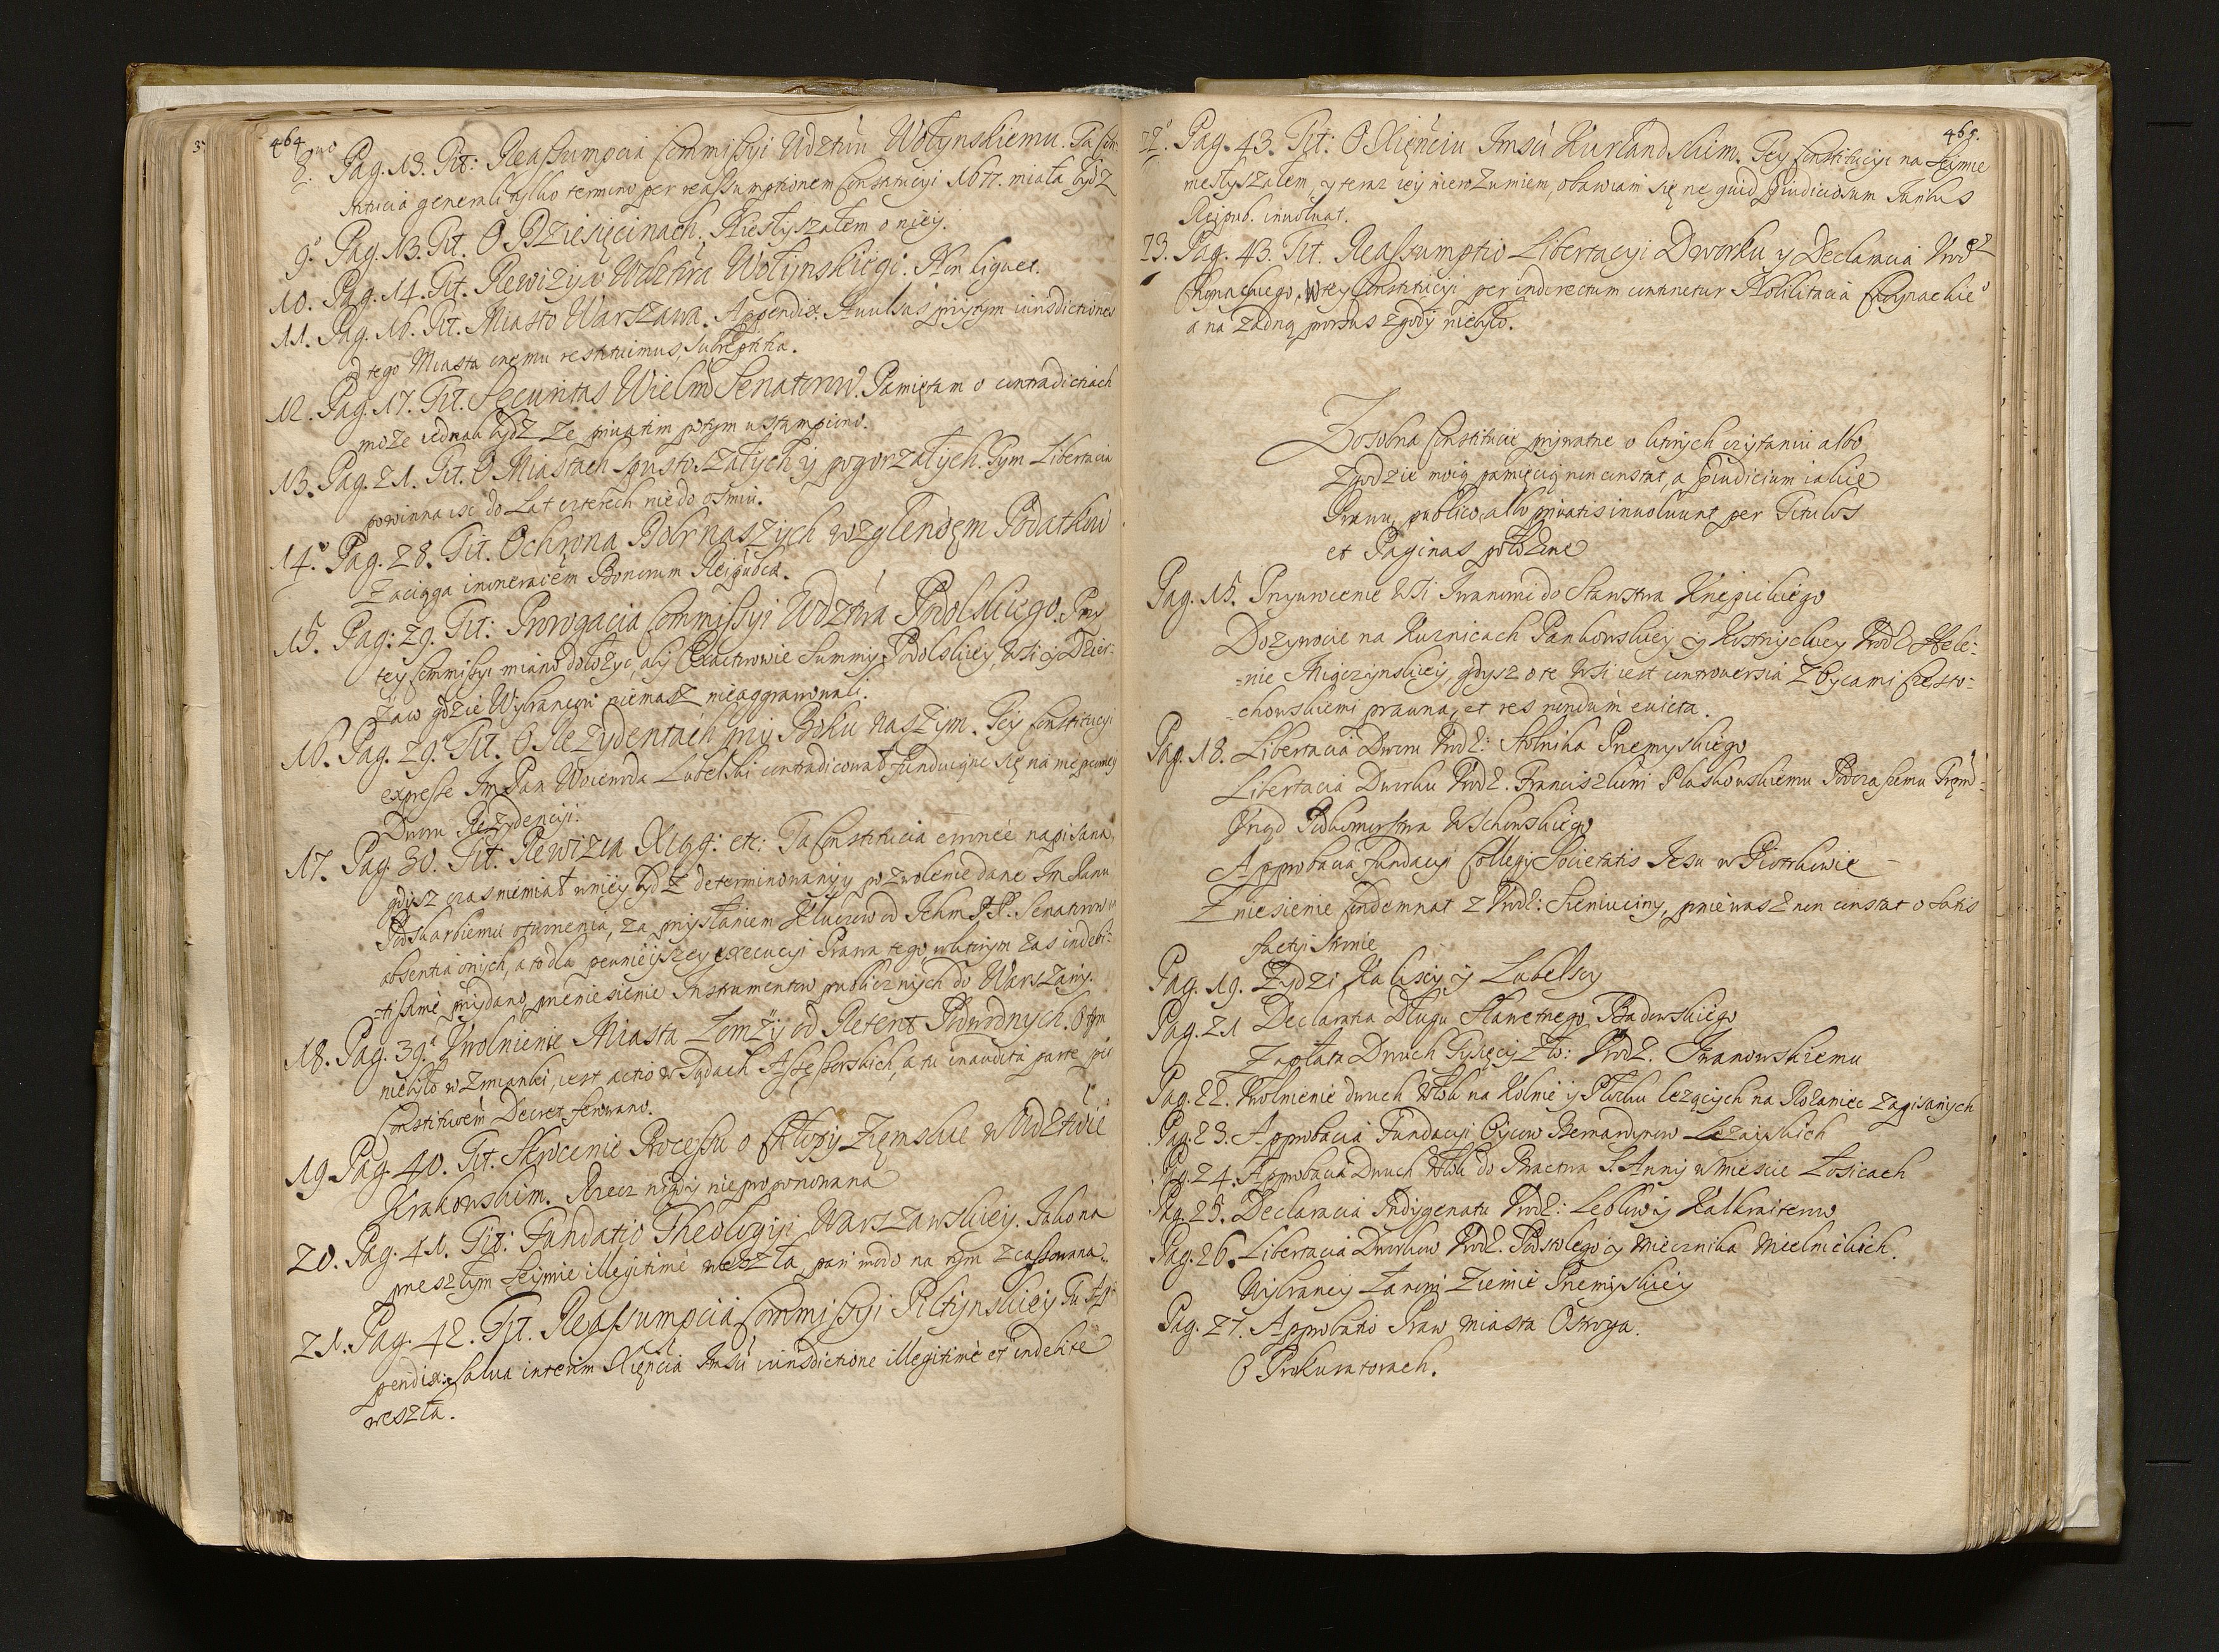 464
8vo Pag. 13. Tit: Reassumpcia Commissyi Wdztwu Wołynskiemu. Ta Con-
stitucia generali tylko termino per reassumptionem Constitucyi 1677. miała bydz
9o Pag. 13. Tit. O Dziesięcinach. Niesłyszałem o niey.
10. Pag. 14. Tit. Rewizya Wdztwa Wołynskiego. Non liquet.
11. Pag. 16. Tit. Miasto Warszawa. Appendix. Auulsas przytym iurisdictiones
od tego Miasta onemu restituimus, subreptitia.
12. Pag. 17. Tit. Securitas Wielm Senatorow. Pamiętam o contradictiach
może iednak bydz że priuatim potym ustąmpiono.
13. Pag. 21. Tit. O Miastach spustoszałych y pogorzałych. Tym Libertacia
powinna isc do Lat czterech nie do osmiu.
14o Pag. 28. Tit. Ochrona Dobr naszych względem Podatkow
Zaciąga Bonorum Reipublicæ.
15. Pag: 29. Tit: Prorogacia Commissyi Wdztwa Podolskiego. Przy
tey Commissyi miano dołożyc, aby Exactorowie Summy Podolskiey, Wsi y Dzier-
zaw gdzie Wybrancow niemasz nieaggrawowali.
16. Pag. 29. Tit. O Rezydentach przy Boku naszym. Tey Constitucyi
expresse Im Pan Woiewoda Lubelski contradicował funduiąc się na
Dworu Rezydencyi.
17. Pag. 30. Tit. Rewizia Xiąg: etc: Ta Constitucia napisana,
gdysz czas niemiał w niey bydz determinowany y pozwolenie dane Im Panu
Podskarbiemu otworzenia, za przysłaniem Kluczow od Ichm PP. Senatorow w
absentia onych, a to dla pewnieyszey execucyi Prawa tego, w ktorym zas indebi-
tissime przydano, przeniesienie Instrumentow publicznych do Warszawy.
18. Pag. 39. Uwolnienie Miasta Łomży od Retent Podwodnych. O tym
niebyło wzmianki, iest actio w Sądach Assessorskich, a tu inaudita parte per
Constitucią Decret ferowano.
19 Pag. 40. Tit. Skrocenie Processu o Chłopy Ziemskie w Wdztwie
Krakowskim. Rzecz nigdy nieproponowana
20. Pag. 41. Tit: Fundatio Theologiyi Warszawskiey. Iako na
przeszłym Seymie illegitime weszła, pari modo na tym zcassowana.
21. Pag. 42. Tit. Reassumpcia Commissyi Piltynskiey Tu Ap-
pendix: salua interim Xięcia Imsci iurisdictione illegitime et indebite
weszła.
465.
22o Pag. 43. Tit: O Xięciu Imsci Kurlandskim. Tey Constitucyi na Seymie
niesłyszałem, y teraz iey nierozumiem, obawiam się ne quid præiudiciosum Iuribus
Reipub. inuoluat.
23. Pag. 43. Tit. Reassumptio Libertacyi Dworku y Declaracia Urodz
Chynackiego. W tey Constitucyi per indirectum continetur Nobilitacia Chynackieo
a na Zadną prorsus zgody niebyło.
Zosobna Constitucie priwatne o ktorych czytaniu albo
Zgodzie moią pamięcią non constat, a præiudicium iakie
Prawu, publico, albo priuatis inuoluunt per Titulos
et Paginas położone
Pag. 15. Przywrocenie Wsi Iwanowi do Starostwa
Dożywocie na Kuznicach Pankowskiey y Urodz Hele-
-nie Miączynskiey, gdysz o te Wsi iest controuersia z Oycami Często-
-chowskiemi prawna, et res nondum euicta.
Pag. 18. Libertacia Dworu Urodz: Stolnika Przemyskiego
Libertacia Dworku Urodz. Franciszkowi Płaskowskiemu Podczaszemu
Urząd Podkomorstwa Wschowskiego
Approbacia fundacyi Collegij Societatis Iesu w Piotrkowie
Zniesienie Condemnat z Urodz: Sieniuciny, poniewasz non constat o satis
factyi stronie
Pag. 19. Zydzi Kaliscy y Lubelscy
Pag. 21 Declaratia Długu Sławetnego Badowskiego
Zapłata Dwuch Tysięcy Zło: Urodz. Iwanowskiemu
Pag. 22. Uwolnienie dwuch Włok na Kolnie y Płocku leżących na Rożaniec zapisanych
Pag. 23. Approbacia Fundacyi Oycow Bernardynow Leżayskich
Pag. 24. Approbacia Dwuch Włok do Bractwa S. Anny w Miescie Łosicach
Pag. 25. Declaracia Indygenatu Urodz: Lebliw y Kalkraiterow
Pag. 26. Libertacia Dworkow Urodz. Podstolego y Miecznika Mielnickich.
Wybrancy Łanowi Ziemie Przemyskiey
Pag. 27. Approbatio Praw Miasta Ostroga.
O Prokuratorach.